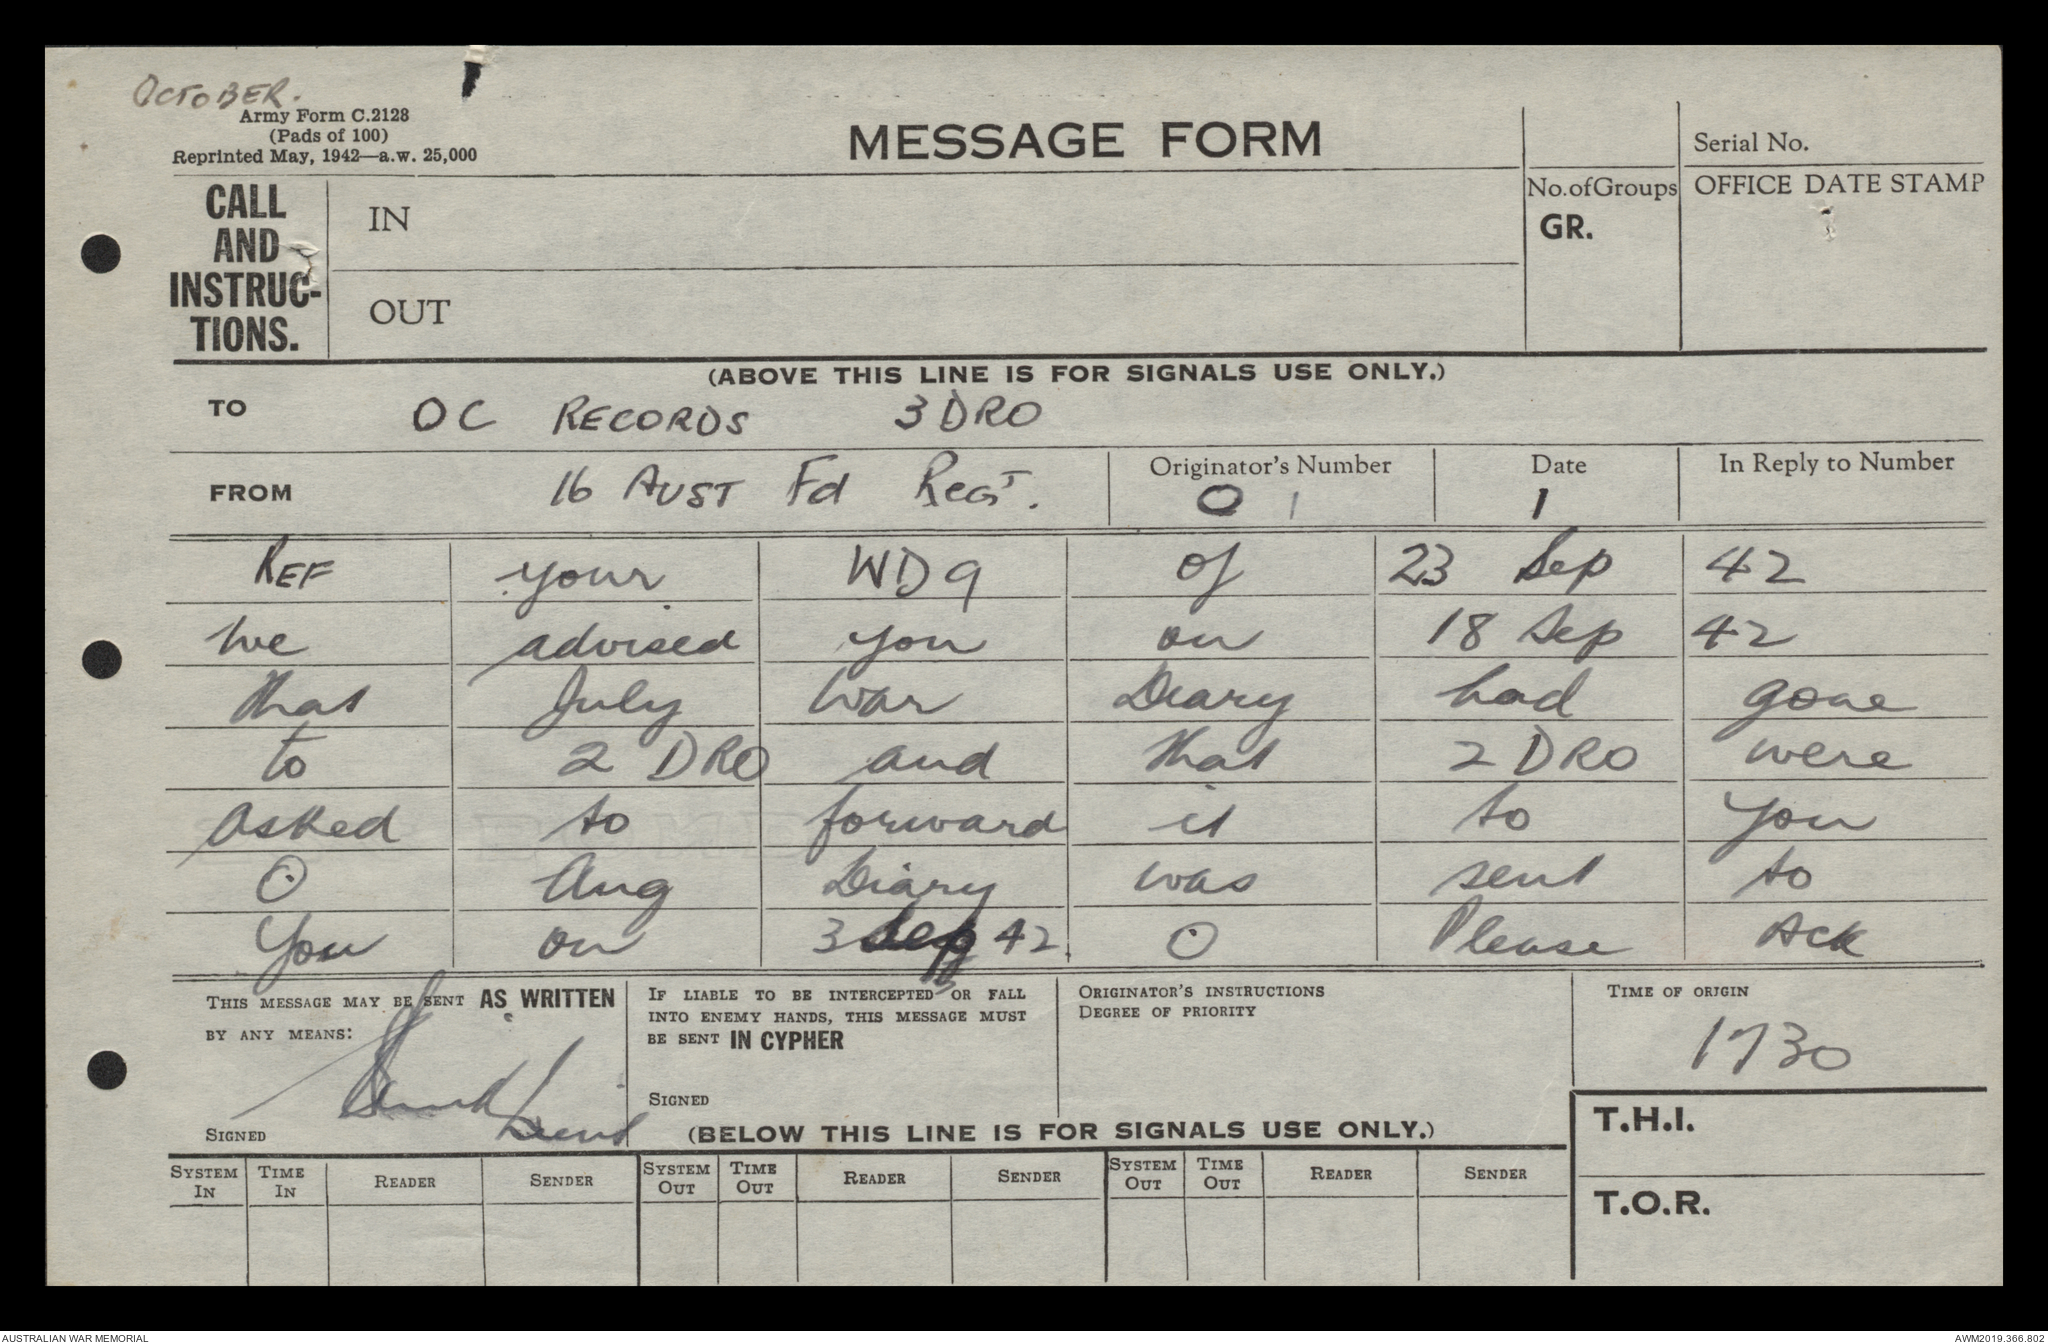 OCTOBER.
Army Form C.2128
(Pads of 100)
Reprinted May, 1942—a.w. 25,000
MESSAGE FORM
Serial No.
CALL
AND
INSTRUC-
TIONS.
IN
OUT
No. of Groups
GR.
OFFICE DATE STAMP
(ABOVE THIS LINE IS FOR SIGNALS USE ONLY.)
TO OC RECORDS 3 DRO
FROM 16 AUST Fd Regt.
Originator's Number
O 1
Date
1
In Reply to Number
REF your WD9 of 23 Sep 42
we advised you on 18 Sep 42
that July War Diary had gone
to 2 DRO and that 2 DRO were
asked to forward it to you
O Aug Diary was sent to
you on 3 Sep 42. O Please Ack
THIS MESSAGE MAY BE SENT AS WRITTEN
BY ANY MEANS:
SIGNED
Lieut
IF LIABLE TO BE INTERCEPTED OR FALL
INTO ENEMY HANDS, THIS MESSAGE MUST
BE SENT IN CYPHER
SIGNED
ORIGINATOR'S INSTRUCTIONS
DEGREE OF PRIORITY
TIME OF ORIGIN
1730
(BELOW THIS LINE IS FOR SIGNALS USE ONLY.)
T.H.I.
T.O.R.
SYSTEM IN TIME IN READER SENDER SYSTEM OUT TIME OUT READER SENDER SYSTEM OUT TIME OUT READER SENDER
AUSTRALIAN WAR MEMORIAL
AWM2019.366.802